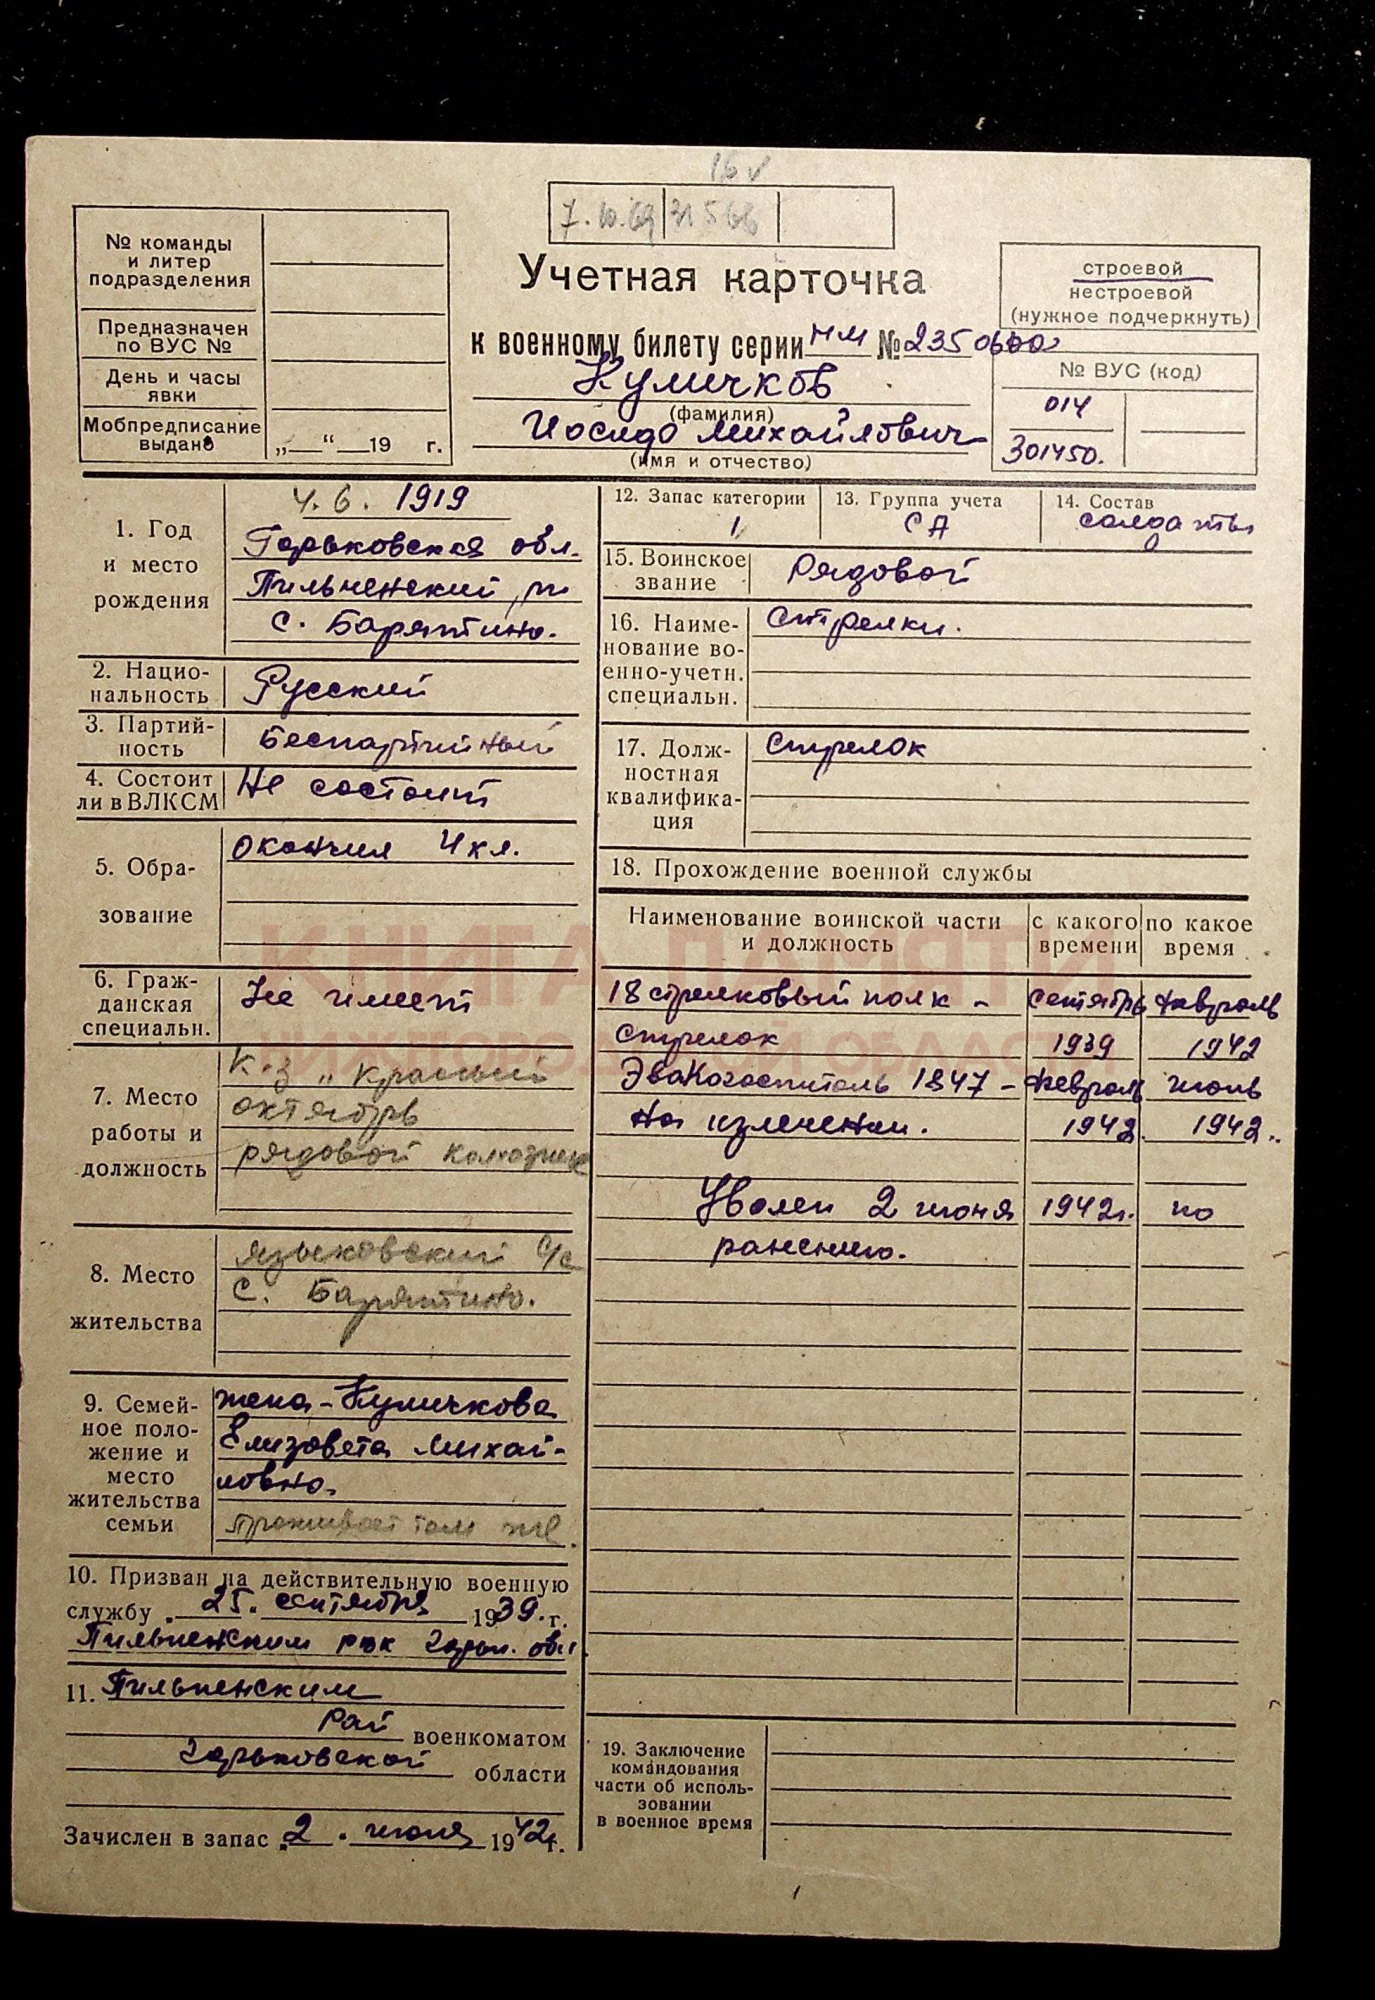 16 v
7.10.69 31568
№ команды
и литер
подразделения
Предназначен
по ВУС №
День и часы
явки
Мобпредписание
выдано „ “ 19 г.
Учетная карточка
к военному билету серии НМ №
Куличков
(фамилия)
Михайлович
(имя и отчество)
строевой
нестроевой
(нужное подчеркнуть)
№ ВУС (код)
014
301450.
1. Год
и место
рождения
4.6. 1919
Горьковская обл.
Пильненский
с. Барятино.
2. Нацио-
нальность
Русский
3. Партий-
ность
Беспартийный
4. Состоит
ли в ВЛКСМ
Не состоит
5. Обра-
зование
окончил 4 кл.
6. Граж-
данская
специальн.
Не имеет
7. Место
работы и
должность
к-з „Красный
октябрь
рядовой колхозник
8. Место
жительства
Языковский с/с
с. Барятино.
9. Семей-
ное поло-
жение и
место
жительства
семьи
жена - Куличкова
Елизовета Михай-
ловна.
проживает там же.
10. Призван на действительную военную
службу „25. сентября 1939. г.
Пильненским рвк Горьк. обл.
11. Пильненским
Рай военкоматом
Горьковской области
Зачислен в запас „2. июня 1942г.
12. Запас категории
1
13. Группа учета
СА
14. Состав
солдаты
15. Воинское
звание
Рядовой
16. Наиме-
нование во-
енно-учетн.
специальн.
Стрелки.
17. Долж-
ностная
квалифика-
ция
Стрелок
18. Прохождение военной службы
Наименование воинской части
и должность
с какого
времени
по какое
время
18 стрелковый полк - сентябрь февраль
стрелок 1939 1942
Эвакогоспиталь 1847 - февраль июнь
на излечении. 1942. 1942.
Уволен 2 июня 1942г. по
ранению.
19. Заключение
командования
части об исполь-
зовании
в военное время
КНИГА ПАМЯТИ
НИЖЕГОРОДСКОЙ ОБЛАСТИ